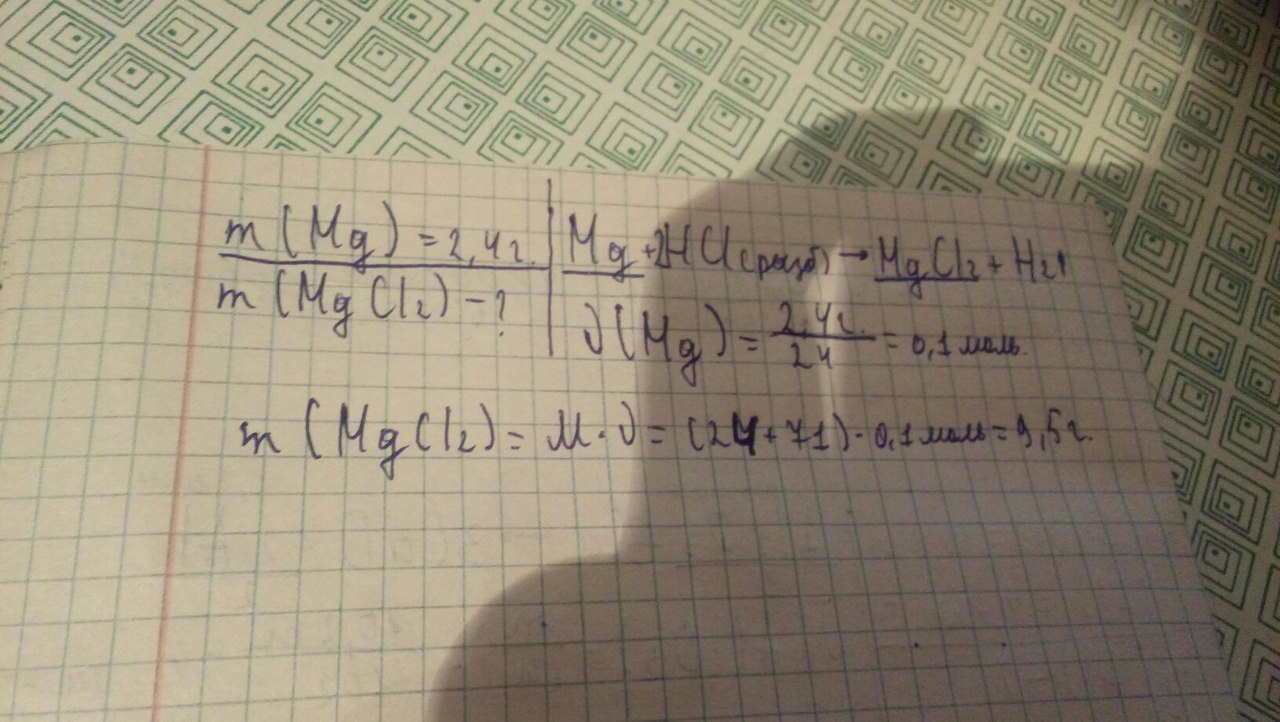 m (Mg) = 2,4 г.
m (MgCl2) - ?
Mg + 2HCl (разб) → MgCl2 + H2↑
ν(Mg) = 2,4г. / 24 = 0,1 моль.
m (MgCl2) = M · ν = (24 + 71) · 0,1 моль = 9,5 г.